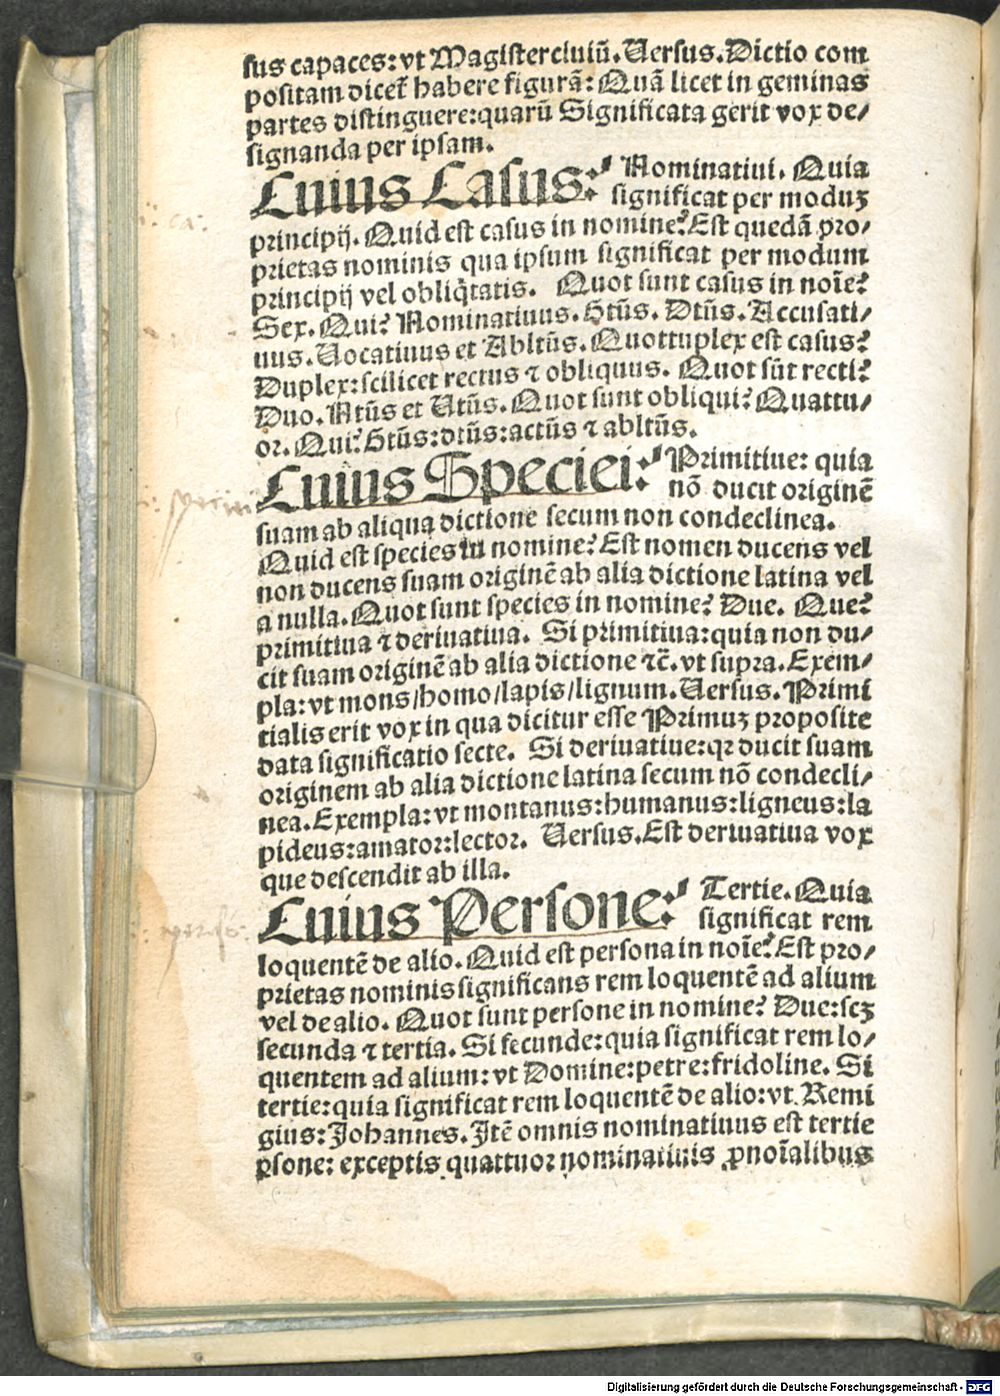 sus capaces: vt Magister ciuiū. Uersus. Dictio com
positam dicet̄ habere figurā: Quā licet in geminas
partes distinguere: quarū Significata gerit vox de/
signanda per ipsam.
Cuius Casus: Nominatiui. Quia
significat per moduꝫ
principij. Quid est casus in nomine? Est quedā pro/
prietas nominis qua ipsum significat per modum
principij vel obliq̄tatis. Quot sunt casus in noīe?
Sex. Qui? Nominatiuus. Gtūs. Dtūs. Accusati/
uus. Uocatiuus et Abltūs. Quottuplex est casus?
Duplex: scilicet rectus ⁊ obliquus. Quot sūt recti?
Duo. Ntūs et Utūs. Quot sunt obliqui? Quattu/
or. Qui? Gtūs: dtūs: actūs ⁊ abltūs.
Cuius Speciei: Primitiue: quia
nō ducit originē
suam ab aliqua dictione secum non condeclinea.
Quid est species in nomine? Est nomen ducens vel
non ducens suam originē ab alia dictione latina vel
a nulla. Quot sunt species in nomine? Due. Que?
primitiua ⁊ deriuatiua. Si primitiua: quia non du/
cit suam originē ab alia dictione ⁊c̄. vt supra. Exem/
pla: vt mons/homo/lapis/lignum. Uersus. Primi
tialis erit vox in qua dicitur esse Primuꝫ proposite
data significatio secte. Si deriuatiue: qꝛ ducit suam
originem ab alia dictione latina secum nō condecli/
nea. Exempla: vt montanus: humanus: ligneus: la
pideus: amator: lector. Uersus. Est deriuatiua vox
que descendit ab illa.
Cuius Persone: Tertie. Quia
significat rem
loquentē de alio. Quid est persona in noīe? Est pro/
prietas nominis significans rem loquentē ad alium
vel de alio. Quot sunt persone in nomine? Due: scꝫ
secunda ⁊ tertia. Si secunde: quia significat rem lo/
quentem ad alium: vt Domine: petre: fridoline. Si
tertie: quia significat rem loquentē de alio: vt. Remi
gius: Johannes. Itē omnis nominatiuus est tertie
ꝑsone: exceptis quattuor nominatiuis ꝓnoīalibus
Digitalisierung gefördert durch die Deutsche Forschungsgemeinschaft - DFG